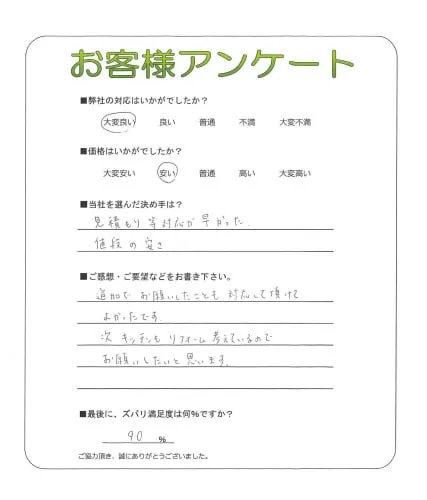 お客様アンケート
■弊社の対応はいかがでしたか？
大変良い 良い 普通 不満 大変不満
■価格はいかがでしたか？
大変安い 安い 普通 高い 大変高い
■当社を選んだ決め手は？
見積もり等対応が早かった.
値段の安さ
■ご感想・ご要望などをお書き下さい。
追加でお願いしたことも対応して頂けて
よかったです.
次キッチンもリフォーム考えているので
お願いしたいと思います.
■最後に、ズバリ満足度は何%ですか？
90 %
ご協力頂き、誠にありがとうございました。